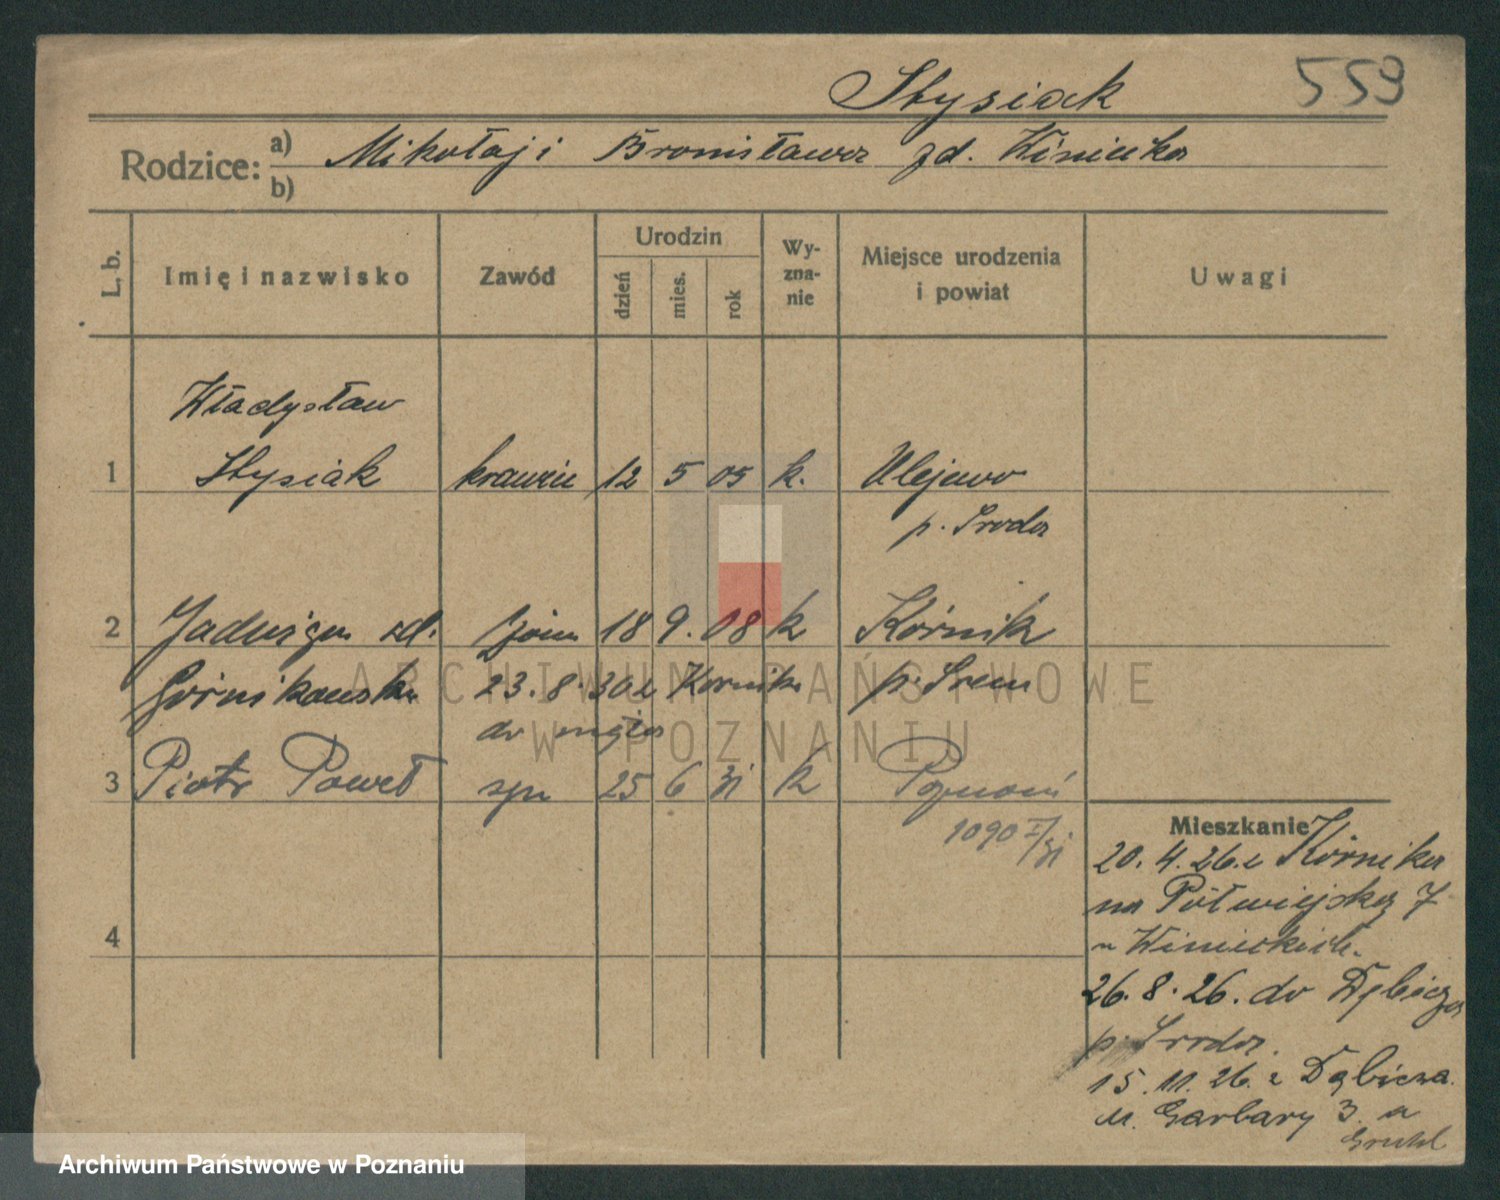 Stysiak 559
Rodzice: a) Mikołaj i Bronisława zd. Winiecka
b)
L. b. Imię i nazwisko Zawód Urodzin dzień mies. rok Wyznanie Miejsce urodzenia i powiat Uwagi
Władysław
1 Stysiak krawiec 12 5 05 k. Ulejewo
p. Środa
2 Jadwiga zd. żona 18 9. 08 k Kórnik
Górnikowska 23.8.30 z Kornika p. Śrem
do męża
3 Piotr Paweł syn 25 6 31 k Poznań
1090 I/31
4
Mieszkanie
20.4.26. z Kórnika
na Półwiejską 7
u Winieckich.
26.8.26. do Dębicza
p. Środa.
15.11.26. z Dębicza.
ul. Garbary 3 u
ARCHIWUM PAŃSTWOWE
W POZNANIU
Archiwum Państwowe w Poznaniu